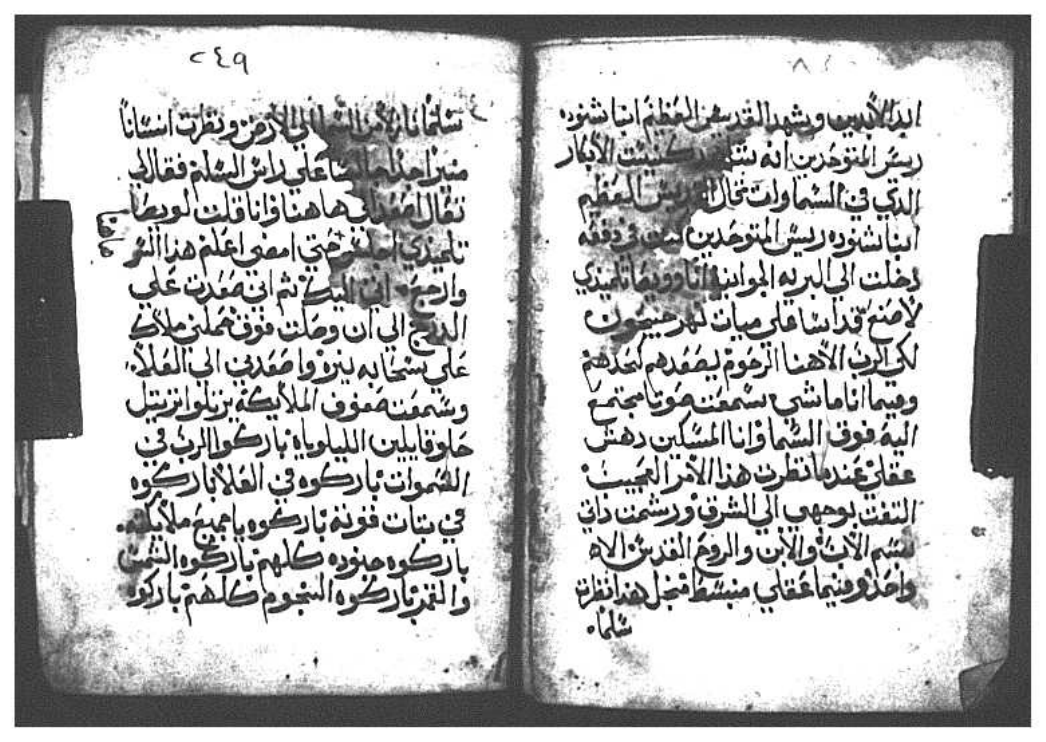 ابد الابدين ويشهد القديس العظيم انبا شنوده
ريس المتوحدين انه كنيست الابكار
الذي في السما ولما تحال القديس العظيم
انبا شنوده ريس المتوحدين في دفعه
دخلت الي البريه الجوانيه انا وويصا تلميذي
لاصنع قداسا علي ميات
لكي الرب الاهنا الرحوم يصعدهم لمجدهم
وفيما انا ماشي سمعت صوتا مجتمع
اليه فوق السما وانا المسكين دهش
عقلي عندما نظرت هذا الامر العجيب
التفت بوجهي الي الشرق ورشمت ذاتي
بسم الاب والابن والروح القدس الاه
واحد وفيما عقلي منبسط مجل هذا نظرت
سلما
٢٤٩
سلما نازلا من السما الي الارض ونظرت انسانا
منيرا جدا جالسا علي راس السلم فقال لي
تعال اصعد الي هاهنا وانا قلت لويصا
تلميذي اجلس حتي امضي اعلم هذا السر
وارجع اتي اليك ثم اني صعدت علي
الدرج الي ان وصلت فوق فحملني ملاك
علي سحابه نيره واصعدني الي العلاء
وسمعت صفوف الملايكة يرتلوا ترتيل
حلو قايلين الليلوياه باركوا الرب في
السموات باركوه في العلا باركوه
في بتات قوته باركوه يا جميع ملايكته
باركوه جنوده كلهم باركوه الشمس
والقمر باركوه النجوم كلهم باركوه